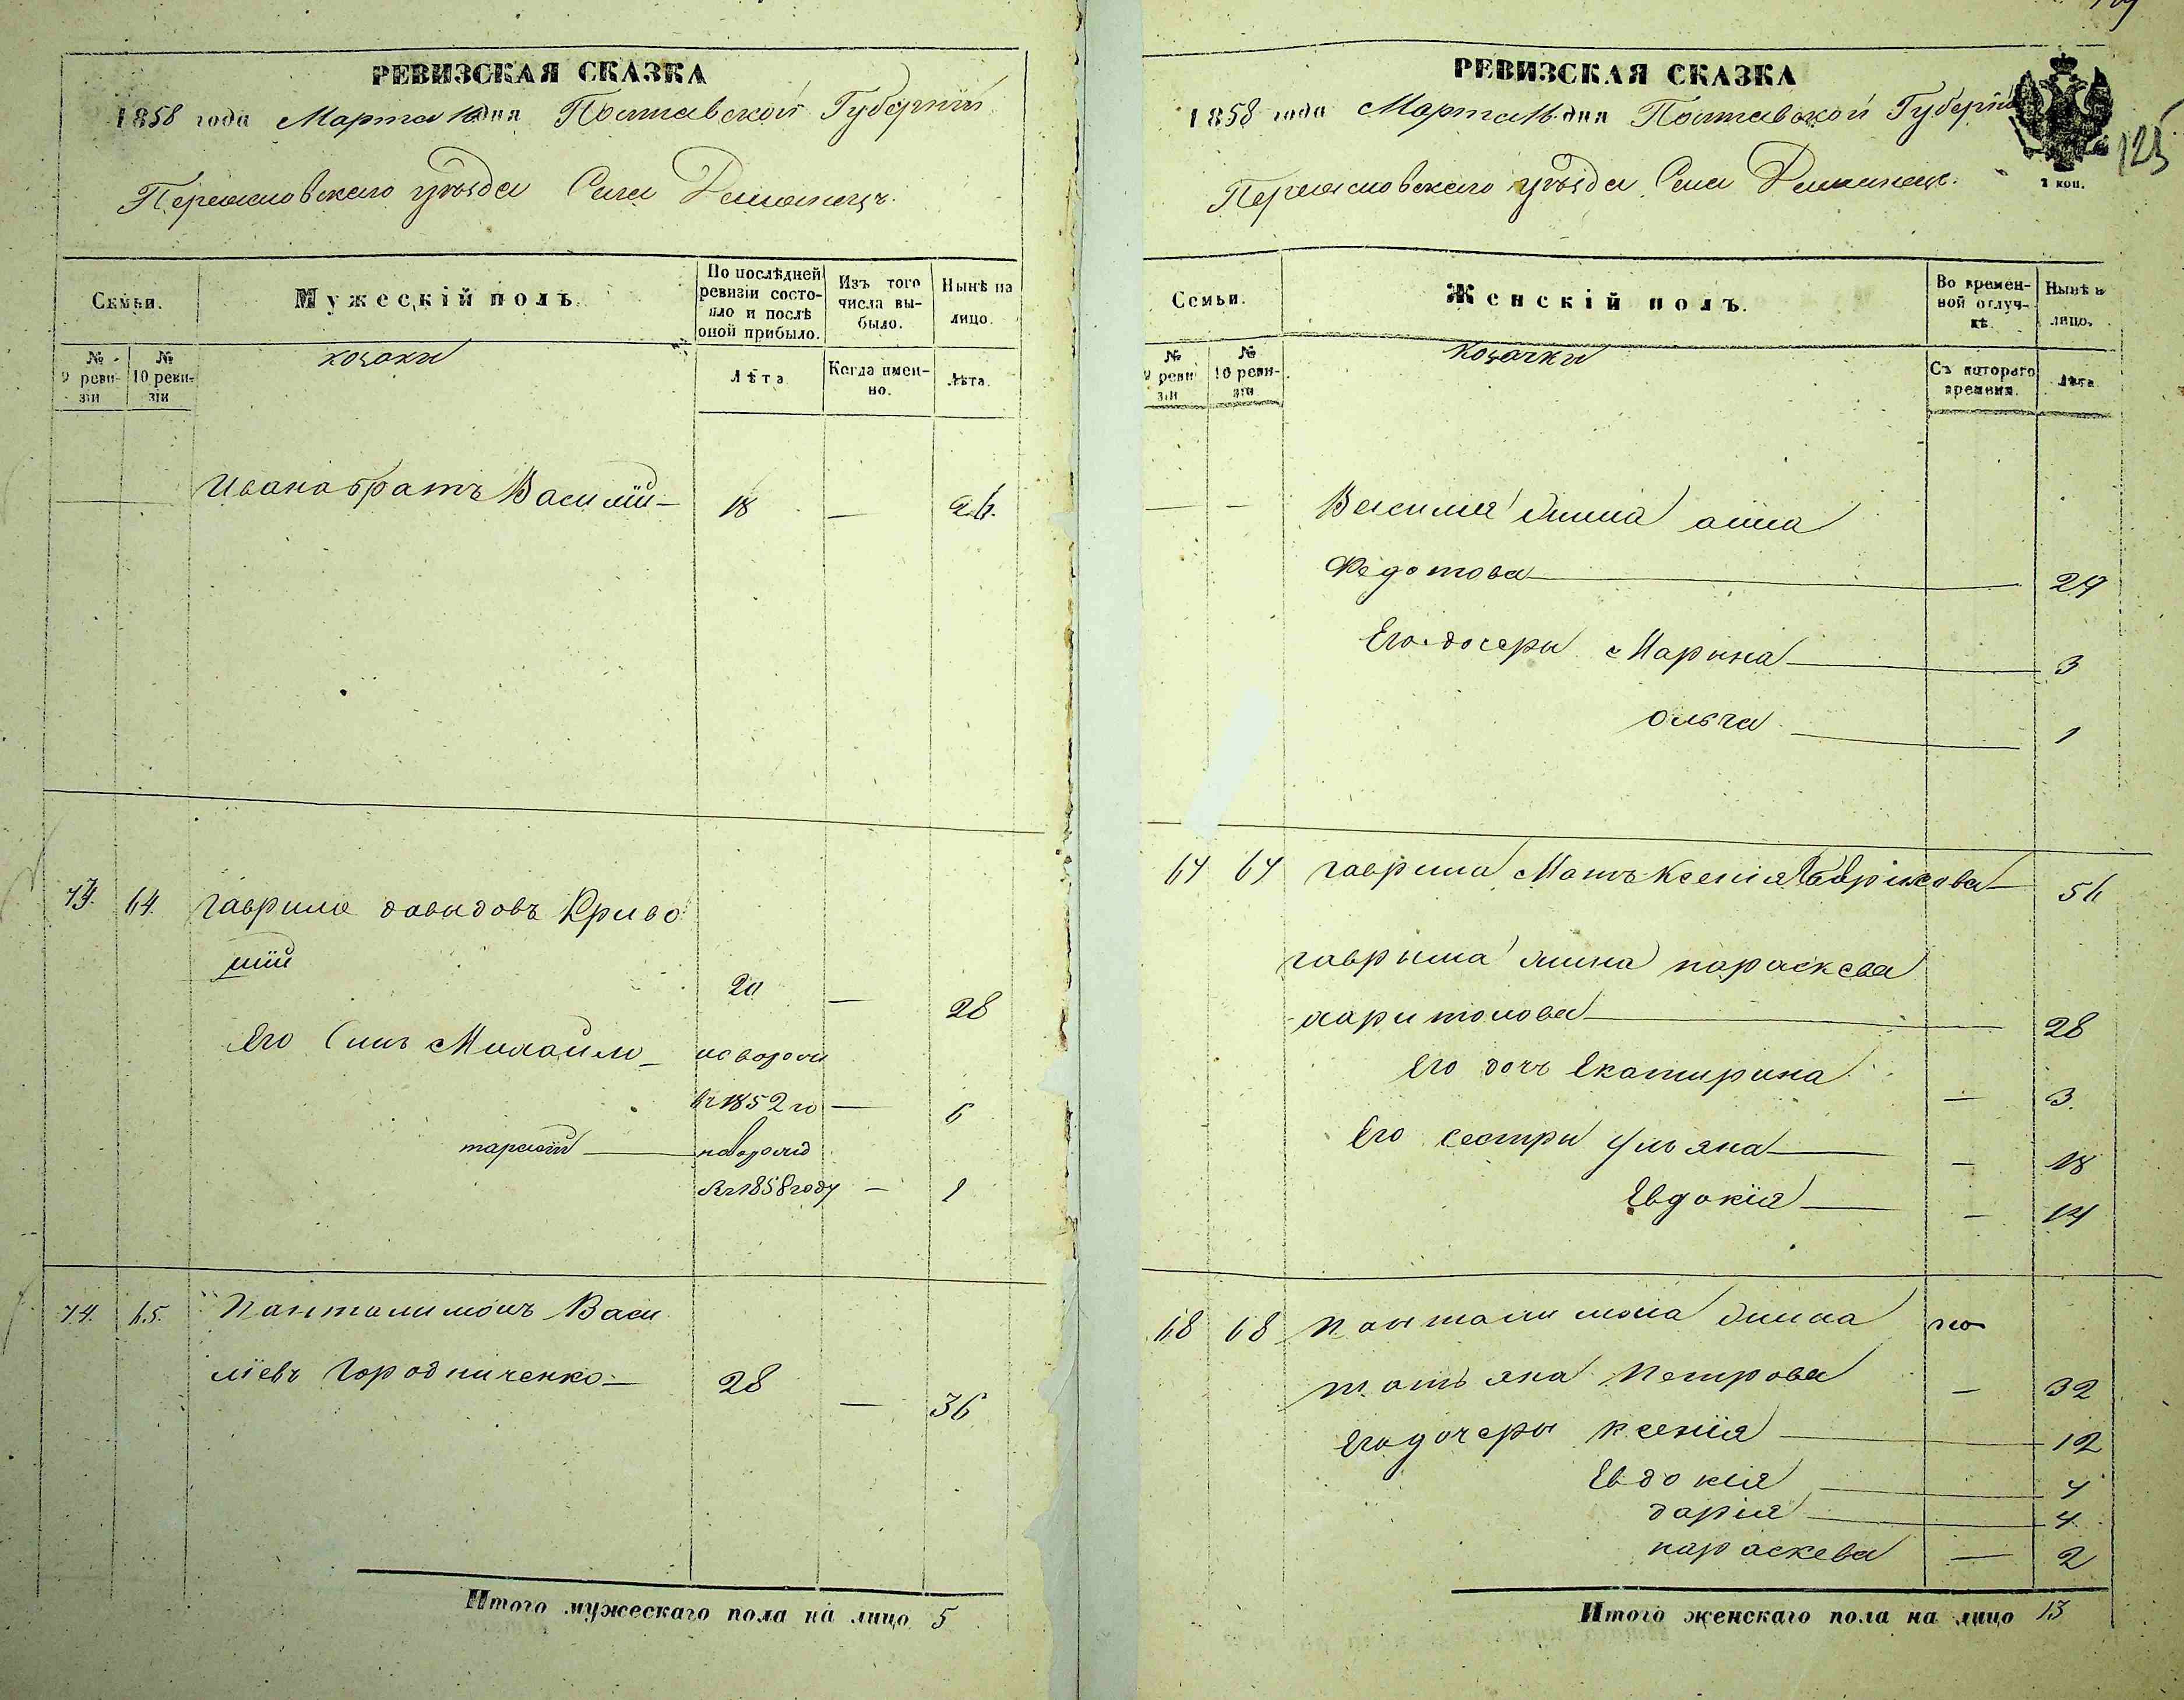 РЕВИЗСКАЯ СКАЗКА
1858 года Марта 16 дня Полтавской Губерніи
Переясловскаго уѣзда Села
Семьи.
Мужескій полъ.
По послѣдней ревизіи состояло и послѣ оной прибыло.
Изъ того числа выбыло.
Нынѣ на лицо.
№ 9 ревизіи
№ 10 ревизіи
козаки
Лѣта
Когда именно.
Лѣта.
Ивана братъ Василій — 18 — 26.
73. 64. Гаврило давидовъ Криво
шій 20 — 28
Его Синъ Михаилъ — новорож
въ 1852 го — 6
тарасій — новорожд
въ 1858 году — 1
74. 65. Панталимонъ Васи
ліевъ Городниченко — 28 — 36
Итого мужескаго пола на лицо 5
РЕВИЗСКАЯ СКАЗКА
125
1858 года Марта 16 дня Полтавской Губерніи
1 коп.
Переясловскаго уѣзда Села
Семьи.
Женскій полъ.
Во временной отлучкѣ.
Нынѣ на лицо.
№ 9 ревизіи
№ 10 ревизіи
козачки
Съ котораго времени.
Лѣта
— — Василія жина анна
Федотова — 29
Его дочеры Марина — 3
Ольга — 1
67 67 Гаврила Мать Ксенія — 56
гаврила жина параскева
харитонова — 28
Его дочъ Екатирина — 3.
Его сестри Ульяна — 18
Евдокія — 14
68 68 Панталимона жина
татьяна Петрова — 32
Его дочеры Ксенія — 12
Евдокія — 7
дарія — 4.
параскева — 2
Итого женскаго пола на лицо 13